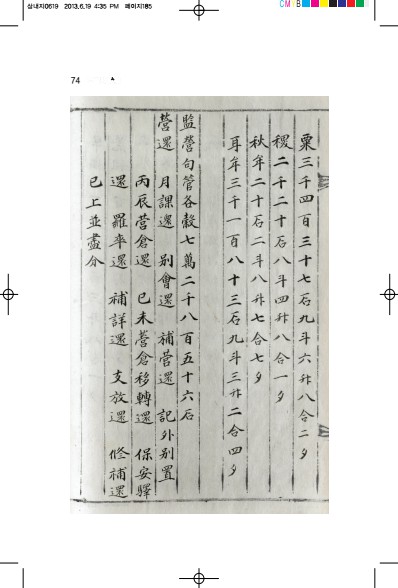 삼내지0619 2013.6.19 4:35 PM 페이지185
CM B
74 ▲
粟三千四百三十七石九斗六升八合二夕
稷二千二十石八斗四升八合一夕
秋牟二十石二斗八升七合七夕
耳牟三千一百八十三石九斗三升二合四夕
監營句管各穀七萬二千八百五十六石
營還 月課還 別會還 補營還 記外別置
丙辰營倉還 已未營倉移轉還 保安驛
還 羅率還 補詳還 支放還 修補還
已上並盡分